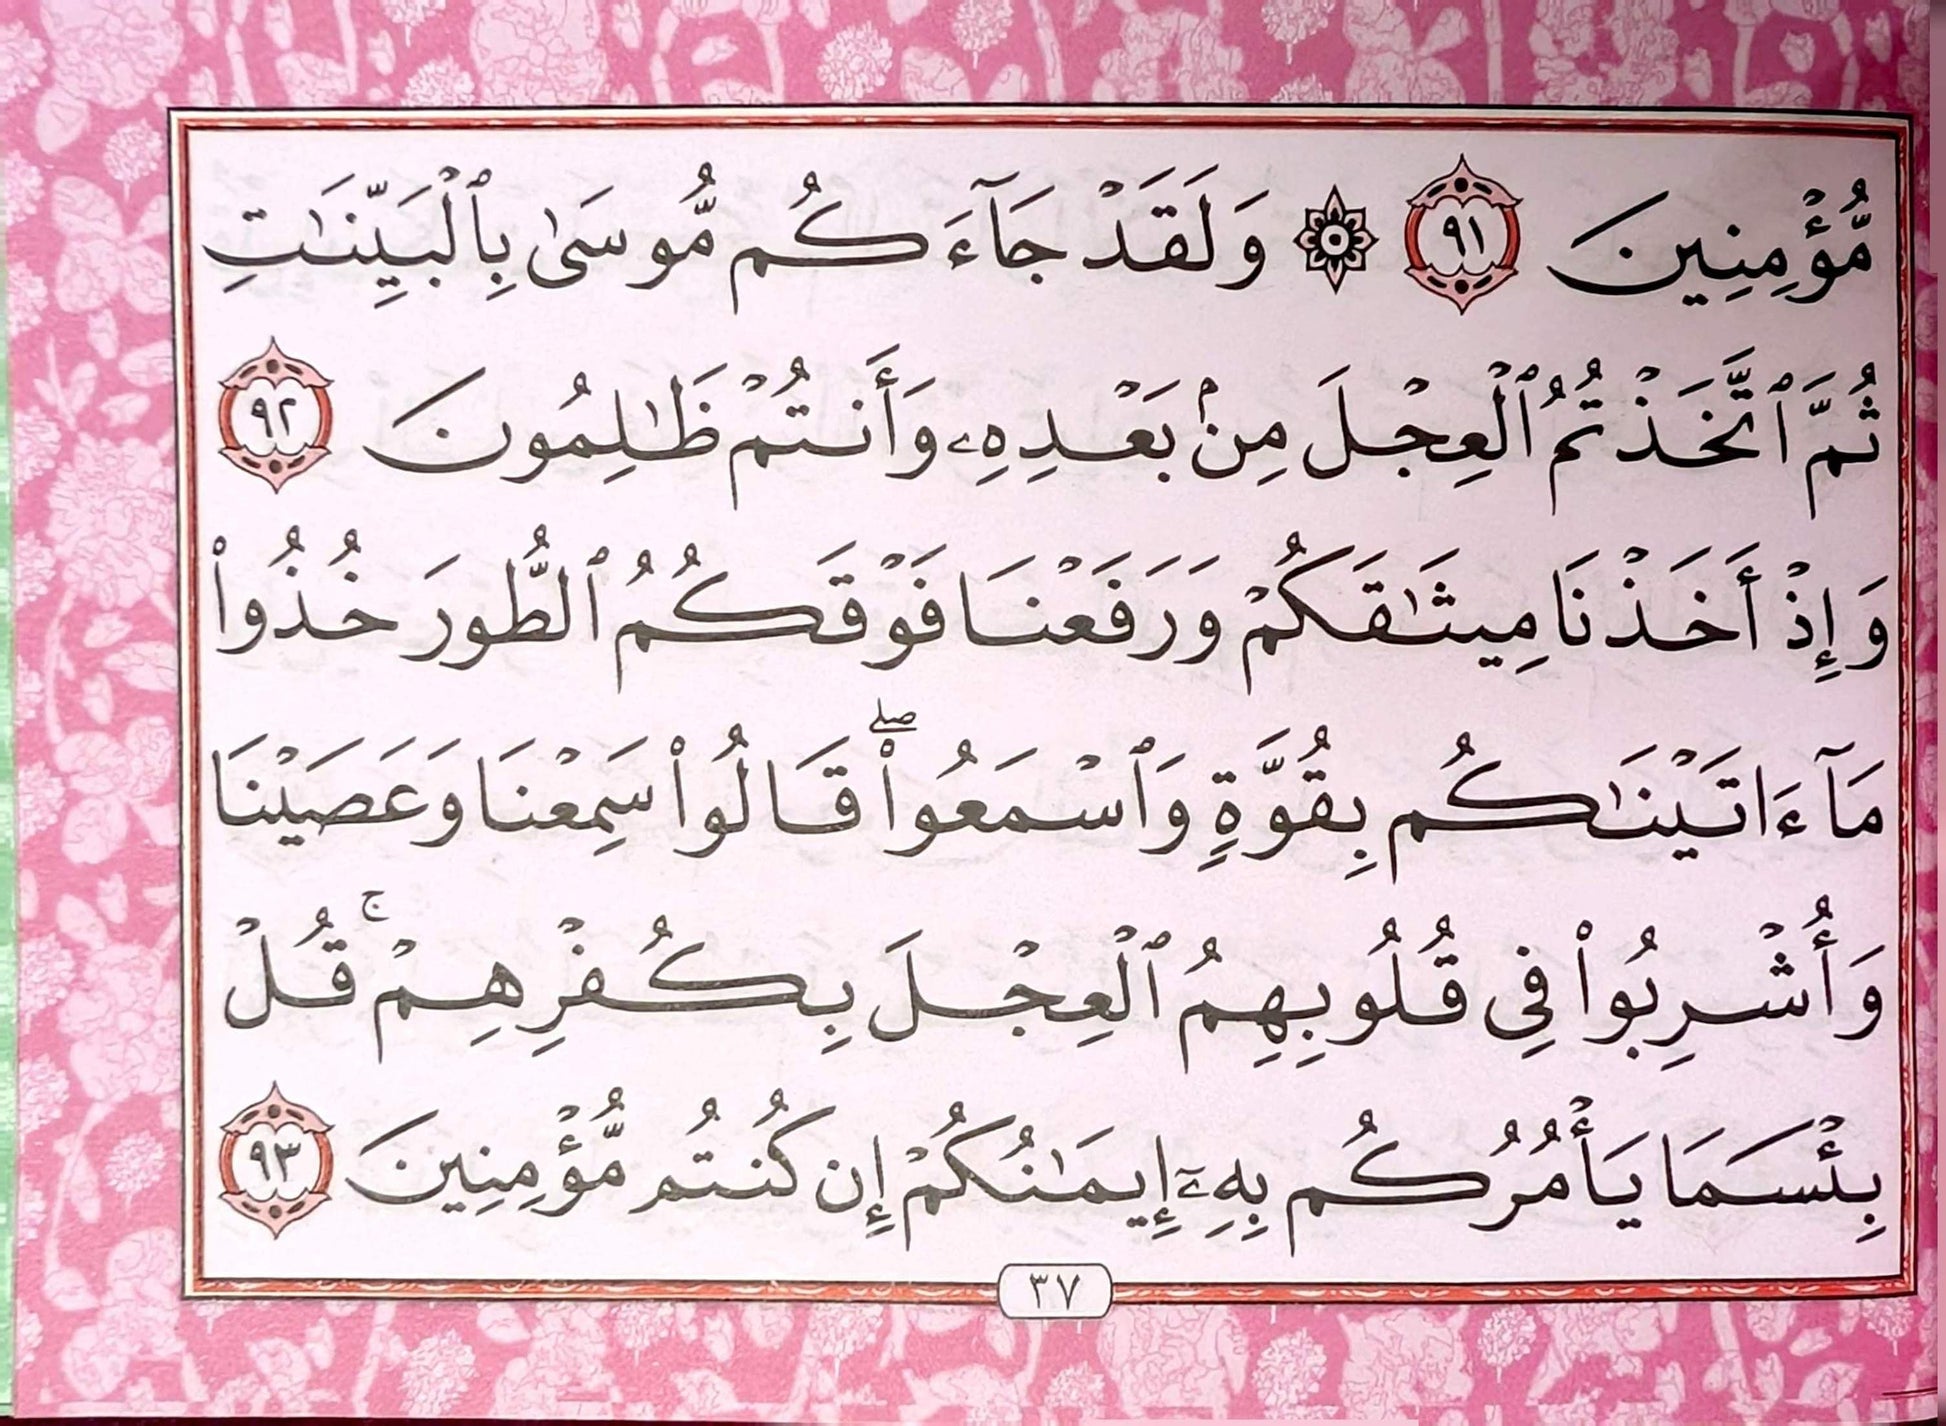 مُّؤْمِنِينَ ٩١ ۞ وَلَقَدْ جَآءَكُم مُّوسَىٰ بِٱلْبَيِّنَـٰتِ
ثُمَّ ٱتَّخَذْتُمُ ٱلْعِجْلَ مِنۢ بَعْدِهِۦ وَأَنتُمْ ظَـٰلِمُونَ ٩٢
وَإِذْ أَخَذْنَا مِيثَـٰقَكُمْ وَرَفَعْنَا فَوْقَكُمُ ٱلطُّورَ خُذُوا۟
مَآ ءَاتَيْنَـٰكُم بِقُوَّةٍ وَٱسْمَعُوا۟ ۖ قَالُوا۟ سَمِعْنَا وَعَصَيْنَا
وَأُشْرِبُوا۟ فِى قُلُوبِهِمُ ٱلْعِجْلَ بِكُفْرِهِمْ ۚ قُلْ
بِئْسَمَا يَأْمُرُكُم بِهِۦٓ إِيمَـٰنُكُمْ إِن كُنتُم مُّؤْمِنِينَ ٩٣
٣٧